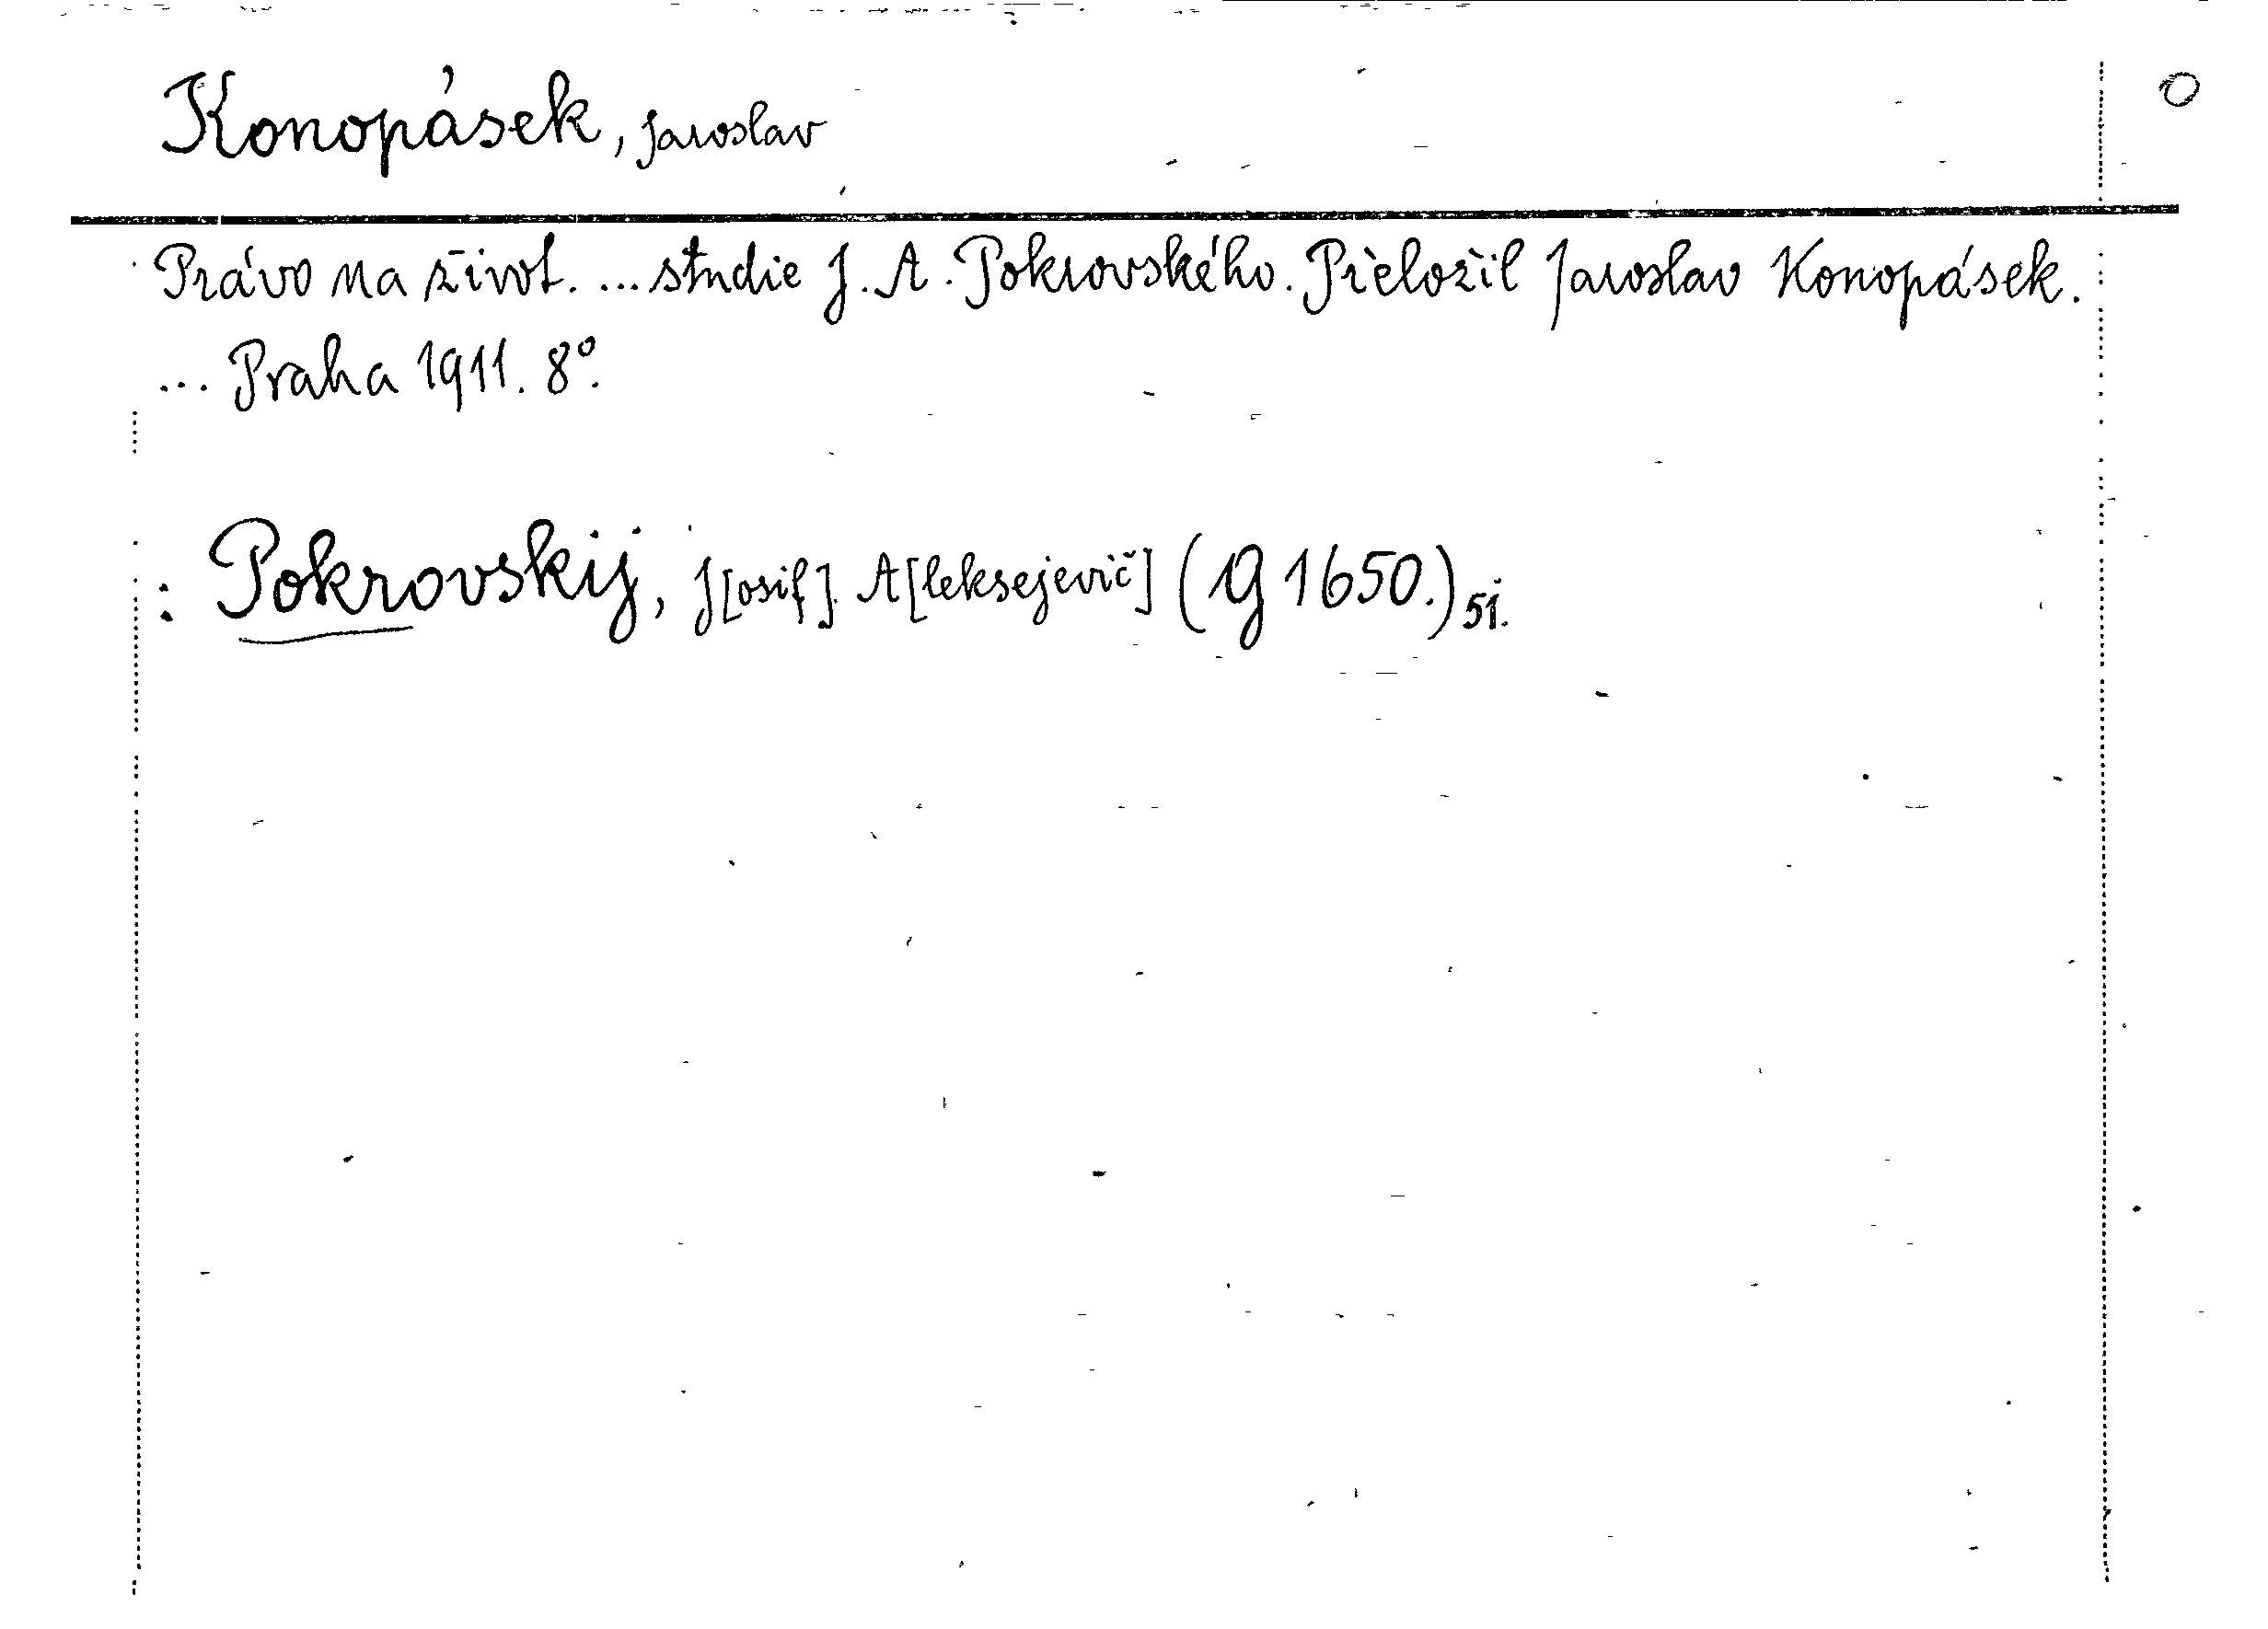 Konopásek, Jaroslav
O
Právo na život. ... studie J. A. Pokrovského. Přeložil Jaroslav Konopásek.
... Praha 1911. 8°.
: Pokrovskij, J[osif] A[leksejevič] (19 1650.)